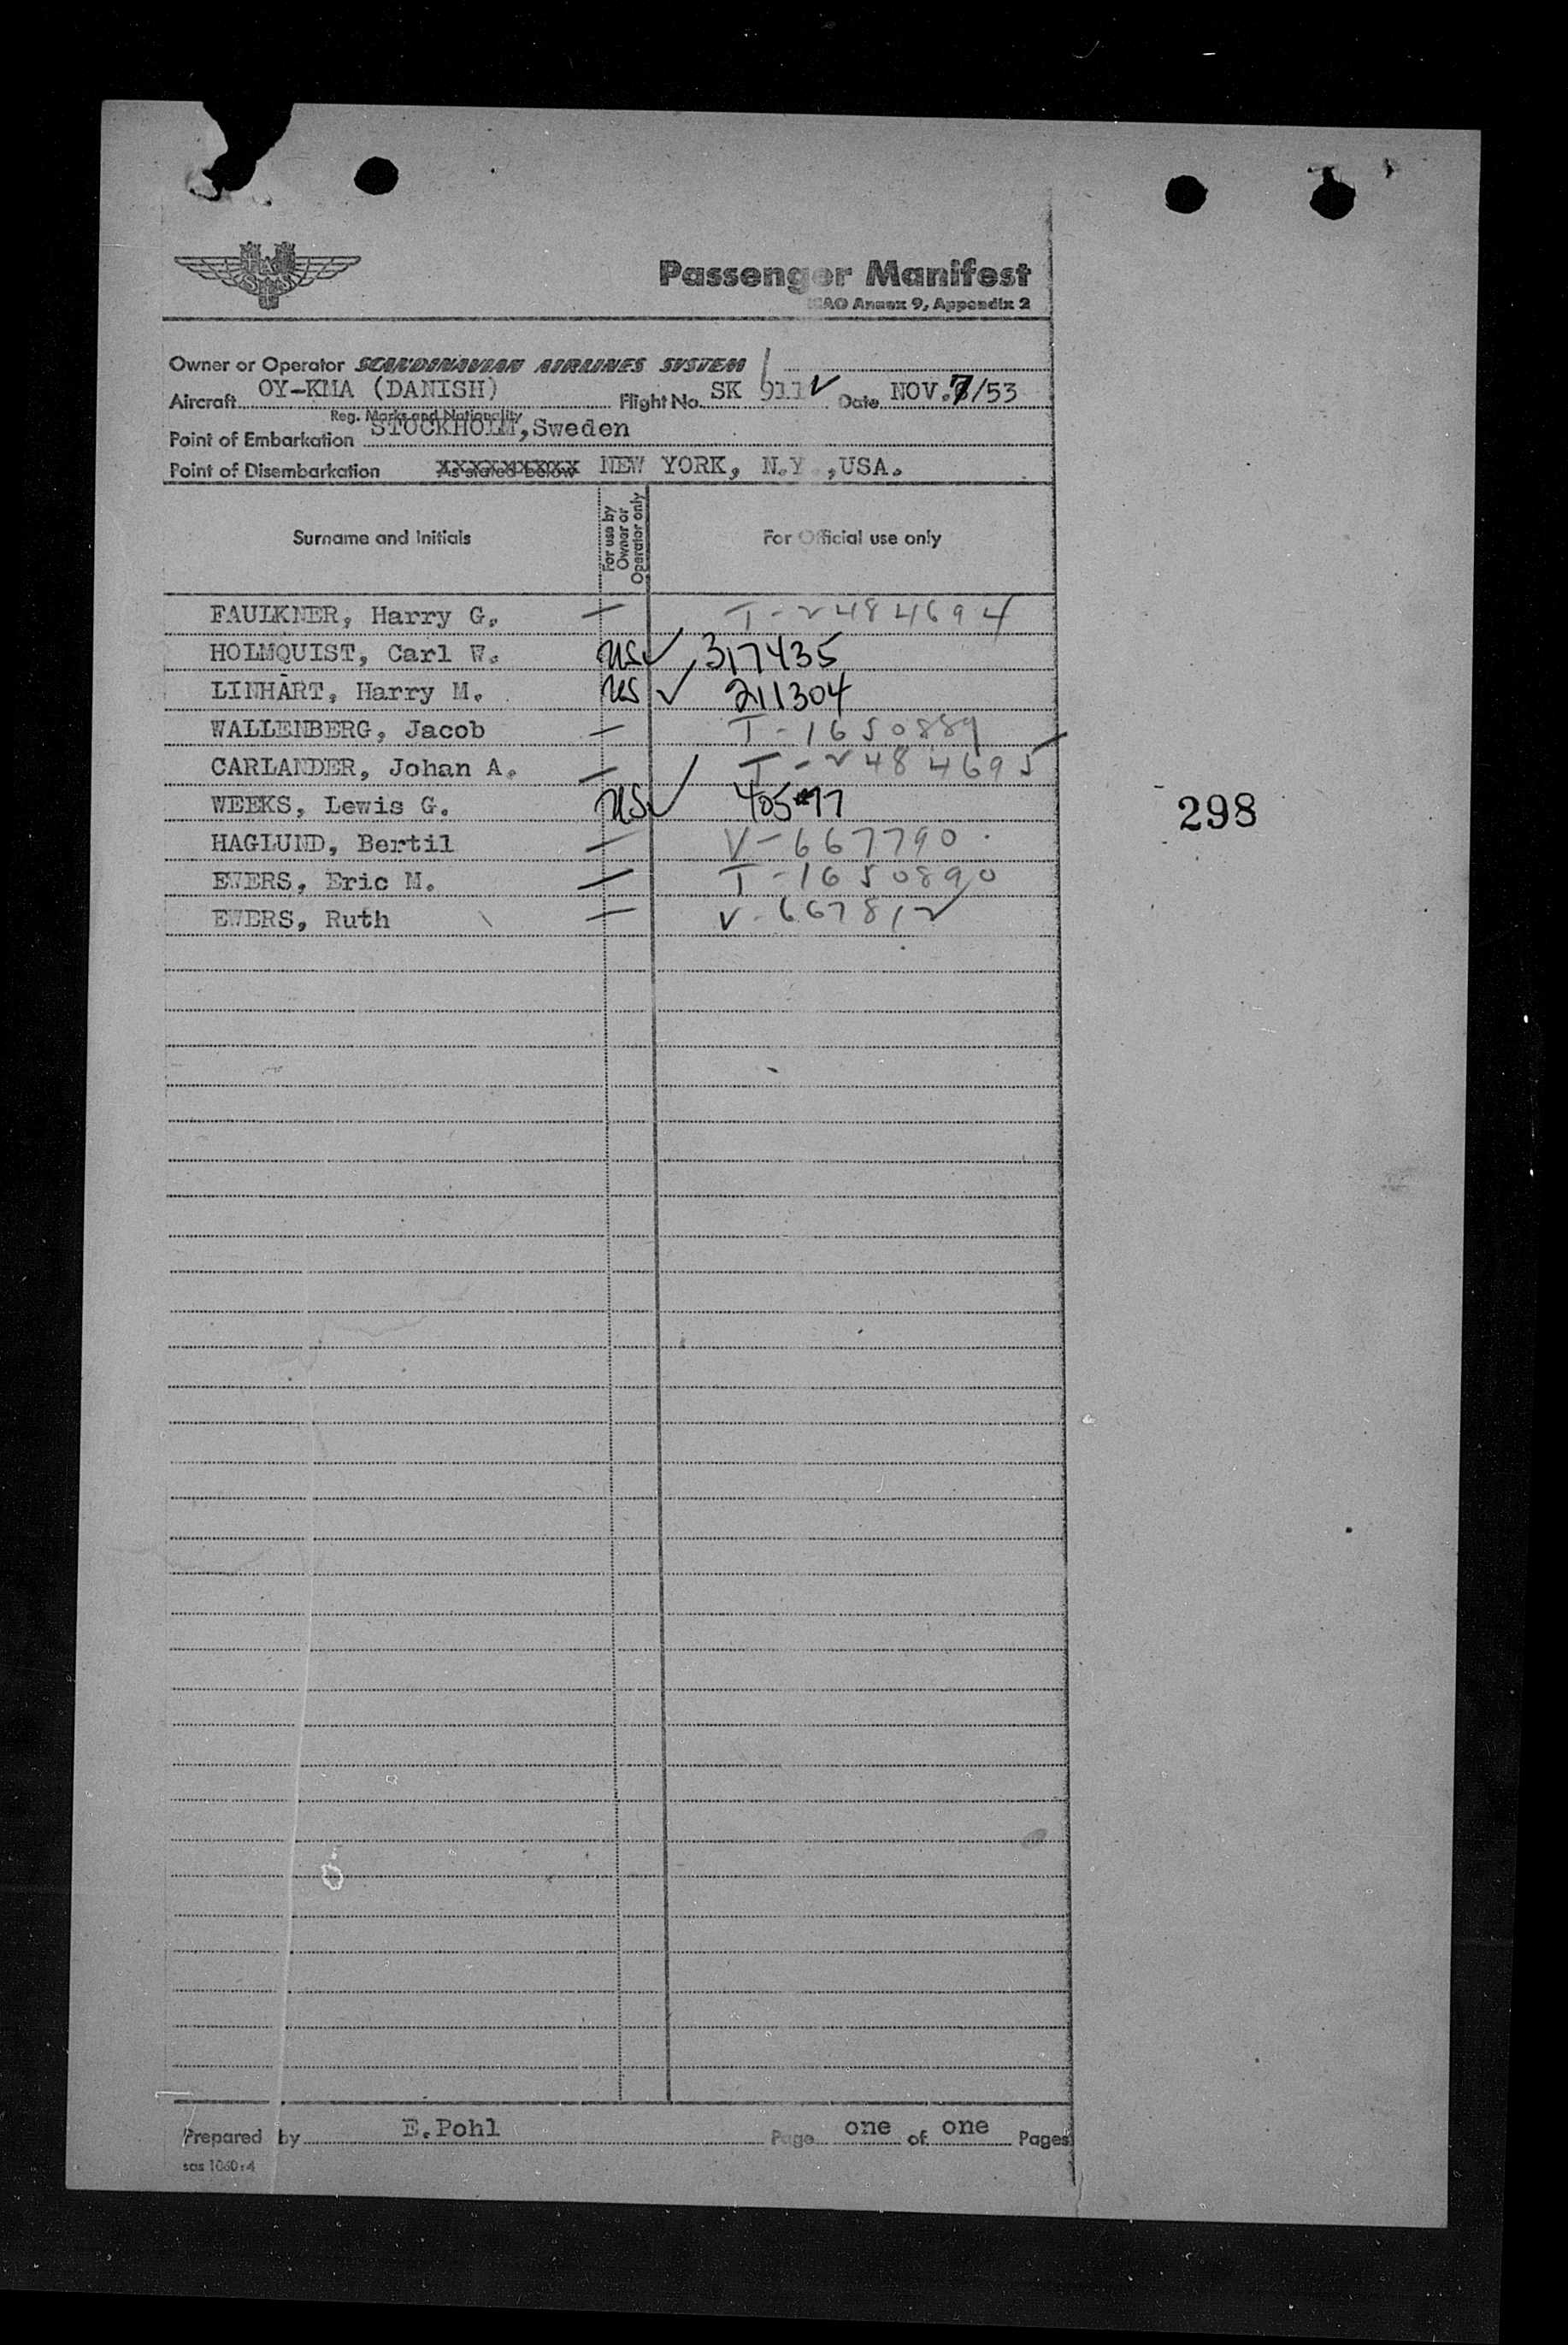 SAS
Passenger Manifest
ICAO Annex 9, Appendix 2
Owner or Operator SCANDINAVIAN AIRLINES SYSTEM
Aircraft OY-KMA (DANISH) Flight No. SK 911 ✓ Date NOV.7/53
Reg. Marks and Nationality
Point of Embarkation STOCKHOLM,Sweden
Point of Disembarkation As stated below XXXXXXXXX NEW YORK, N.Y.,USA.
Surname and Initials For use by Owner or Operator only For Official use only
FAULKNER, Harry G. — T-2484694
HOLMQUIST, Carl W. US ✓ 317435
LINHART, Harry M. US ✓ 211304
WALLENBERG, Jacob — T-1650889
CARLANDER, Johan A. — T-2484695
WEEKS, Lewis G. US ✓
298
HAGLUND, Bertil — V-667790
EWERS, Eric M. — T-1650890
EWERS, Ruth — V-667812
Prepared by E.Pohl Page one of one Pages
sas 1060:4